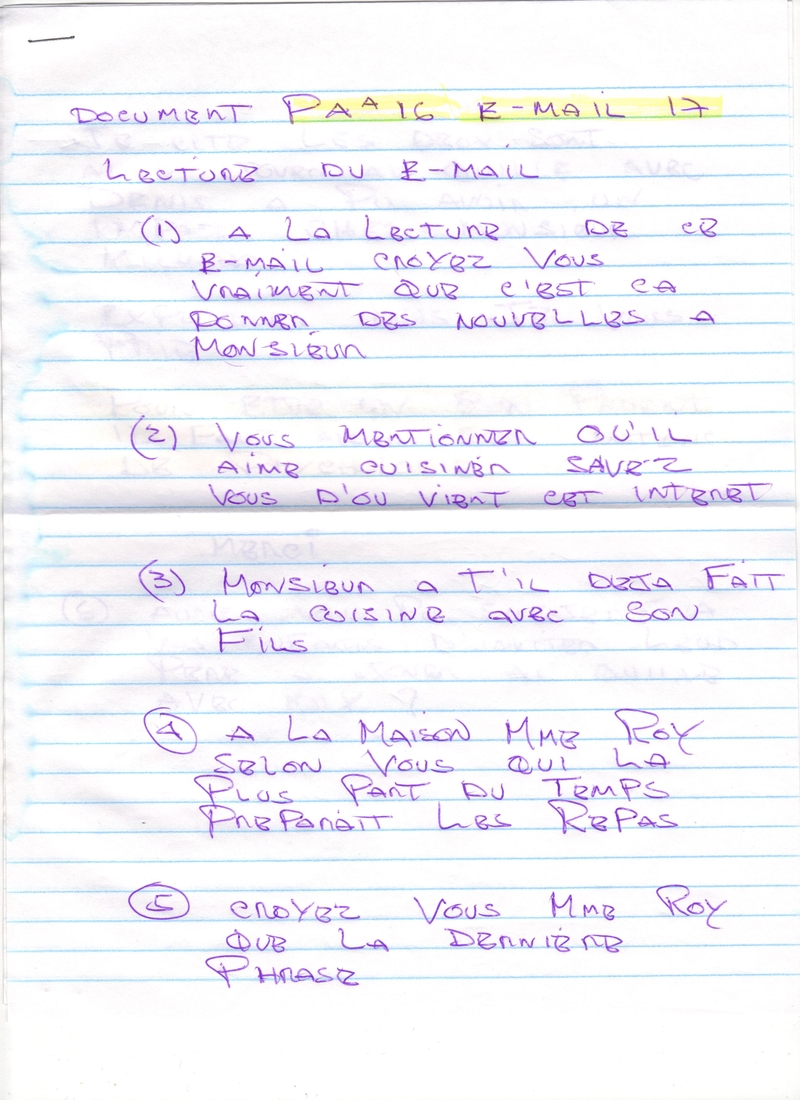 DOCUMENT PAA 16 E-MAIL 17
LECTURE DU E-MAIL
(1) A LA LECTURE DE CE
E-MAIL CROYEZ VOUS
VRAIMENT QUE C'EST CA
DONNER DES NOUVELLES A
MONSIEUR
(2) VOUS MENTIONNER QU'IL
AIME CUISINER SAVEZ
VOUS D'OU VIENT CET INTERET
(3) MONSIEUR A T'IL DEJA FAIT
LA CUISINE AVEC SON
FILS
4 A LA MAISON MME ROY
SELON VOUS QUI LA
PLUS PART DU TEMPS
PREPARAIT LES REPAS
5 CROYEZ VOUS MME ROY
QUE LA DERNIERE
PHRASE